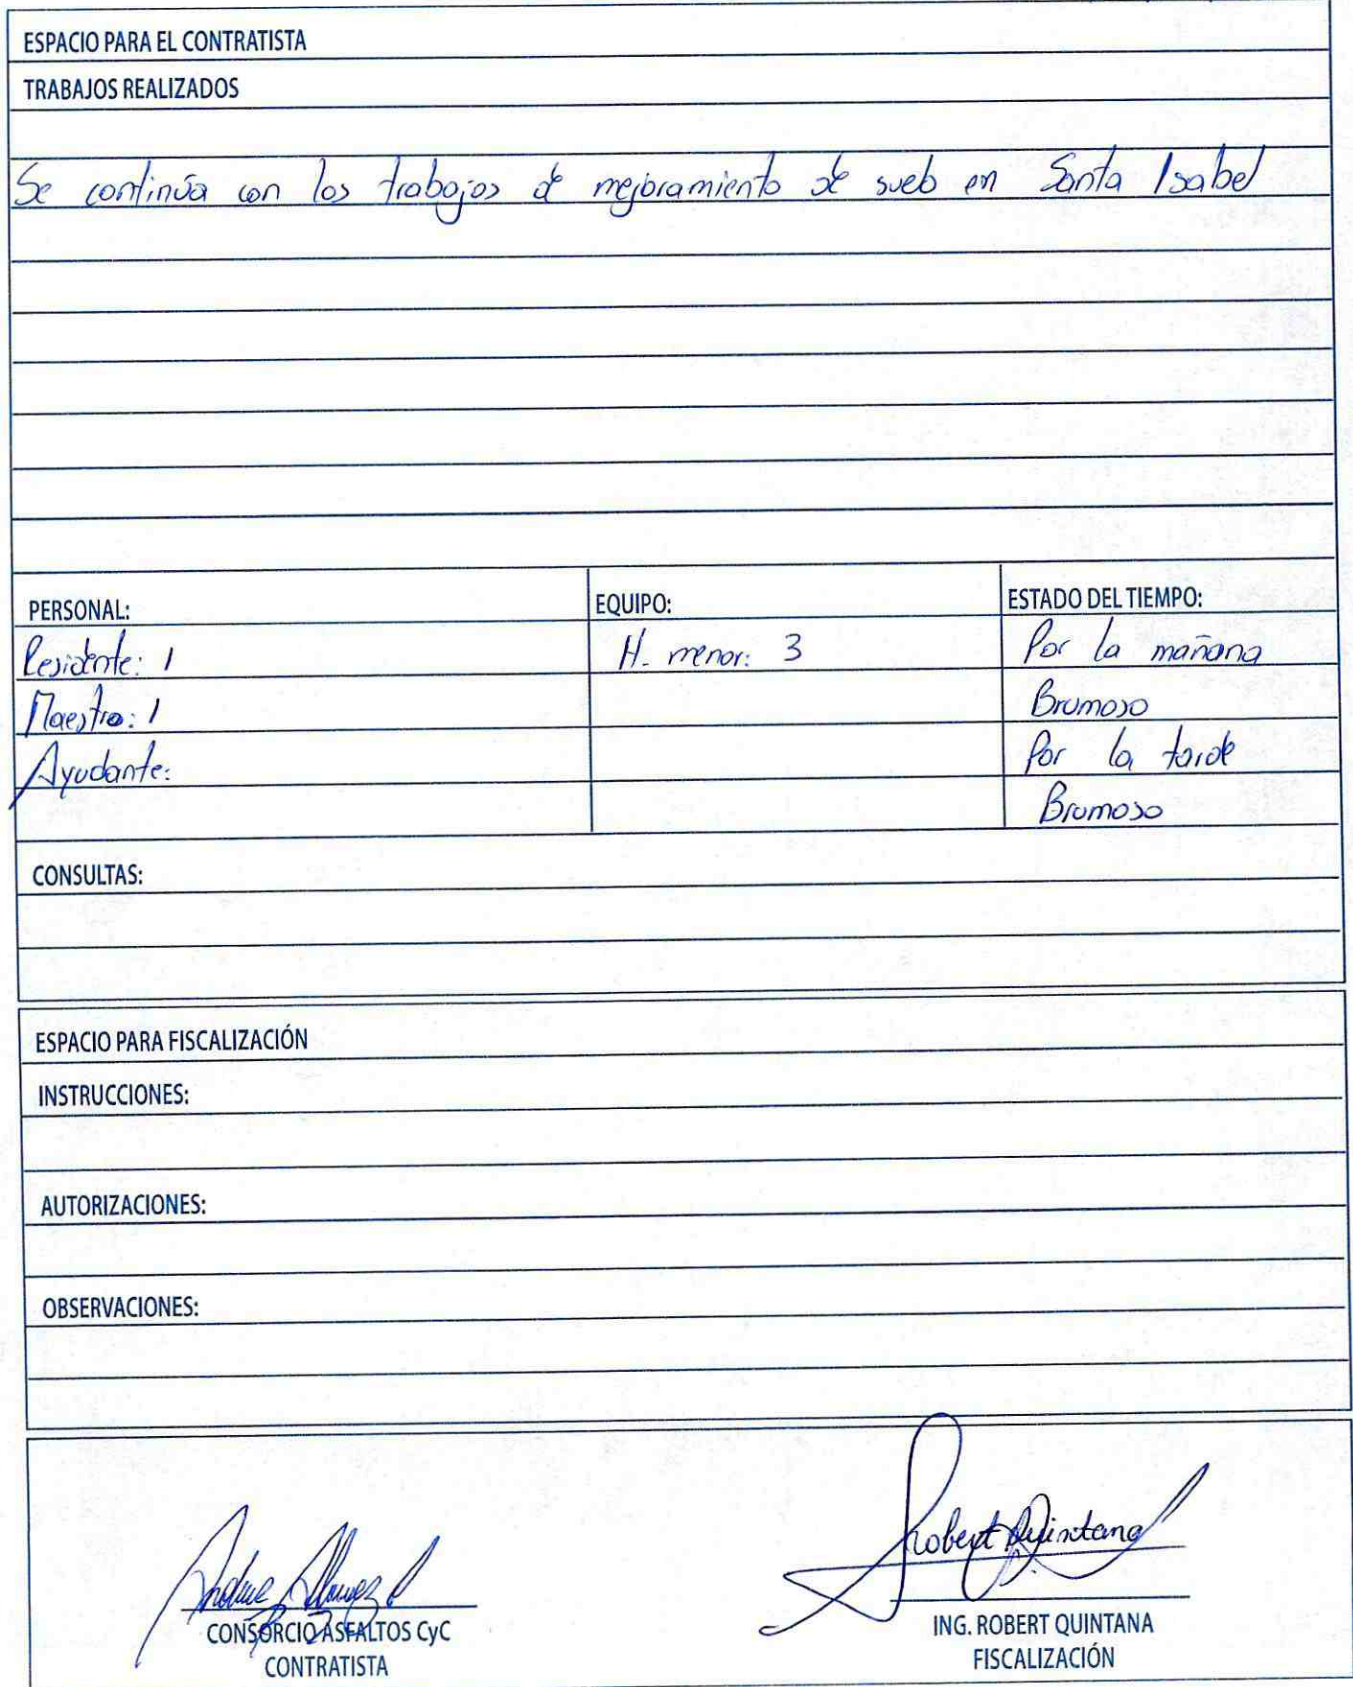 ESPACIO PARA EL CONTRATISTA
TRABAJOS REALIZADOS
Se continúa con los trabajos de mejoramiento de suelo en Santa Isabel
PERSONAL:
Residente: 1
Maestro: 1
Ayudante:
EQUIPO:
H. menor: 3
ESTADO DEL TIEMPO:
Por la mañana
Brumoso
Por la tarde
Brumoso
CONSULTAS:
ESPACIO PARA FISCALIZACIÓN
INSTRUCCIONES:
AUTORIZACIONES:
OBSERVACIONES:
CONSORCIO ASFALTOS CyC
CONTRATISTA
Robert Quintana
ING. ROBERT QUINTANA
FISCALIZACIÓN